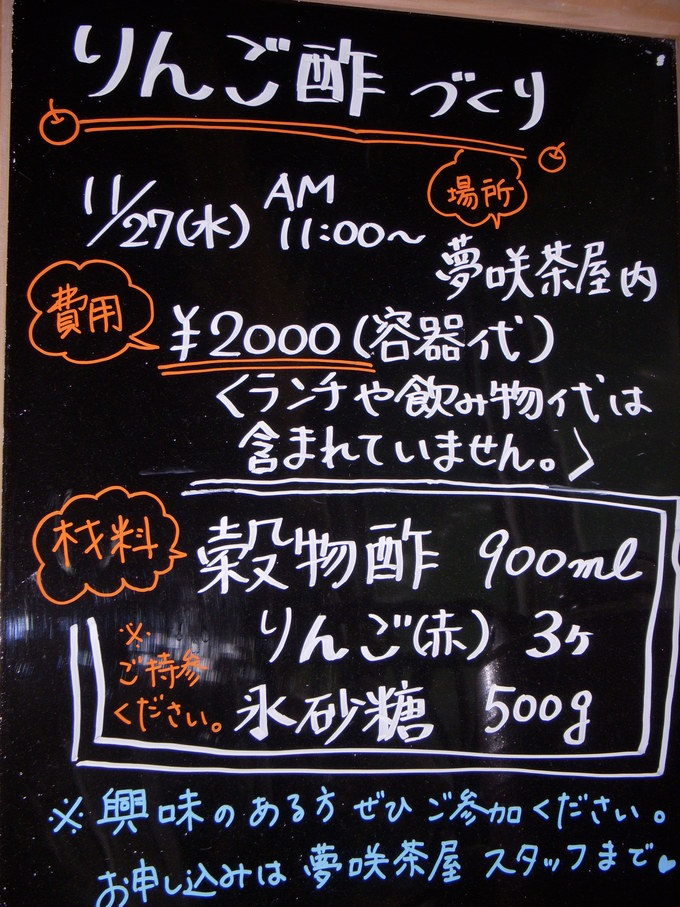 りんご酢 づくり
11/27(水) AM 11:00〜
場所
夢咲茶屋内
費用
¥2000(容器代)
〈ランチや飲み物代は
含まれていません。〉
材料
穀物酢 900ml
りんご(赤) 3ヶ
氷砂糖 500g
※
ご持参
ください。
※興味のある方 ぜひ ご参加ください。
お申し込みは 夢咲茶屋 スタッフまで♥